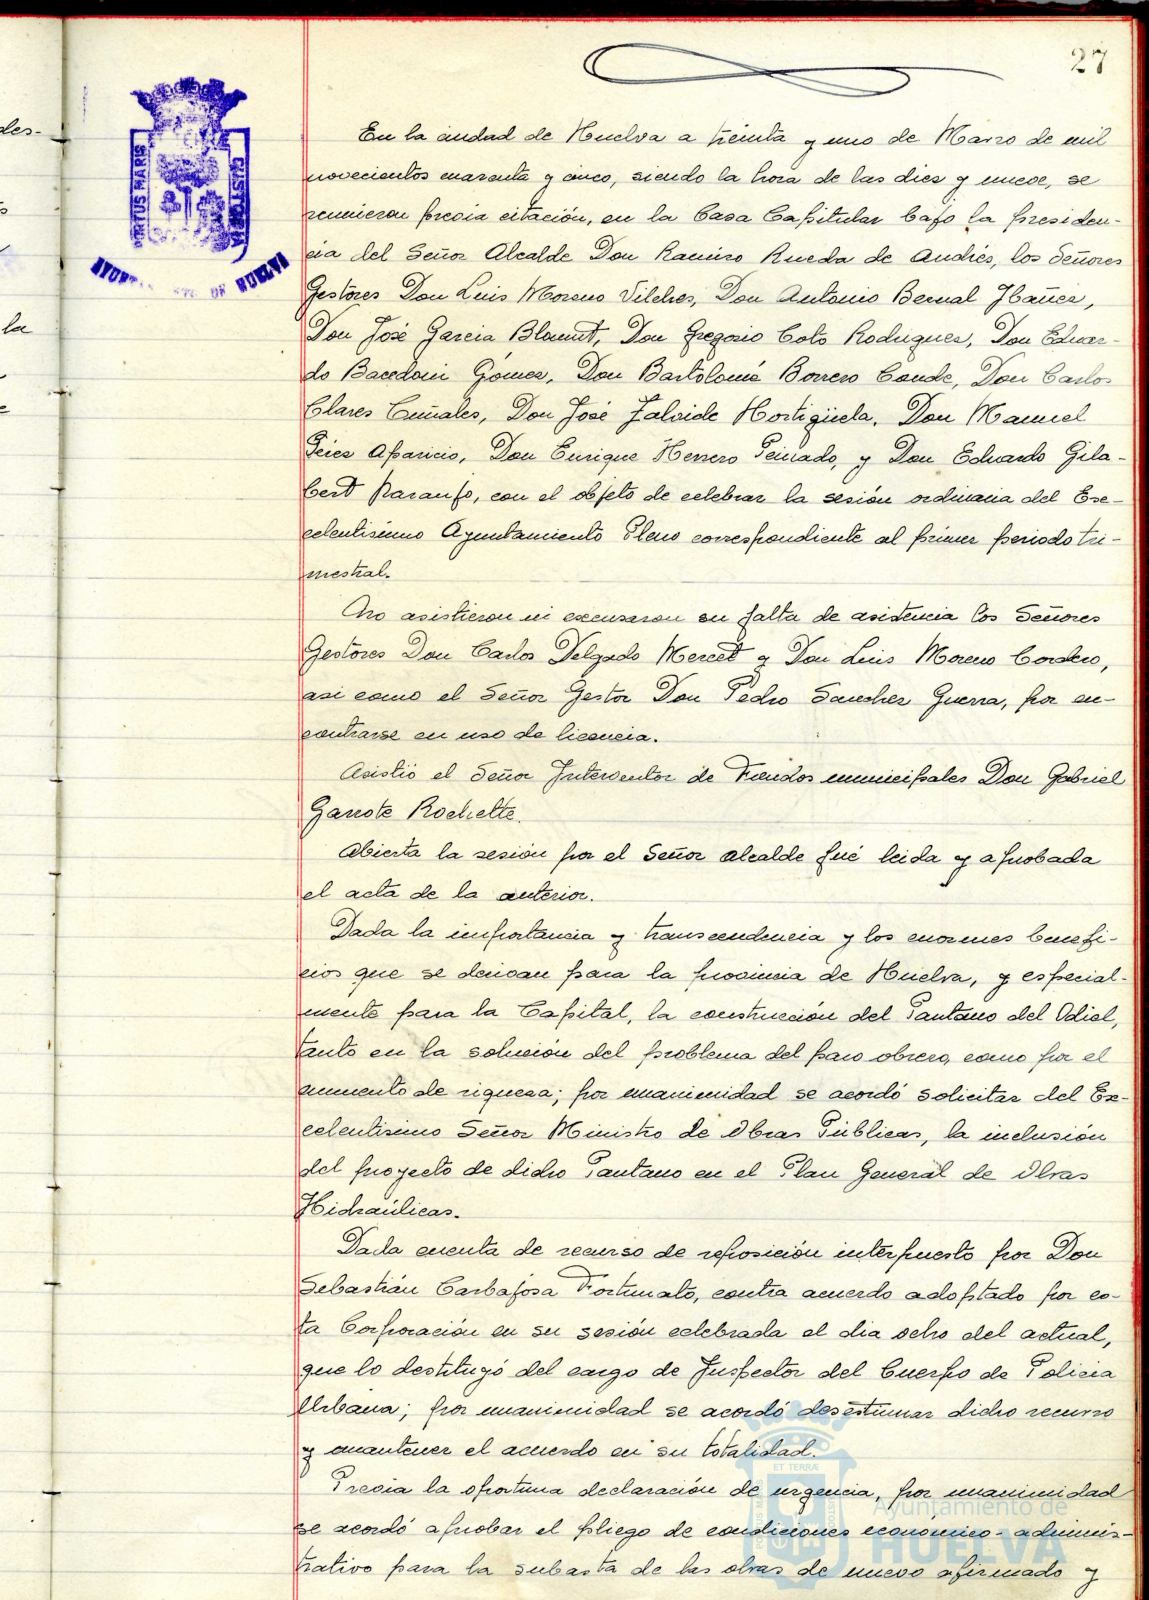 27
des-
la
PORTUS MARIS
CUSTODIA
HUELVA
En la ciudad de Huelva a treinta y uno de Marzo de mil
novecientos cuarenta y cinco, siendo la hora de las diez y nueve, se
reunieron previa citación, en la Casa Capitular bajo la presiden-
cia del Señor Alcalde Don Ramiro Rueda de Andrés, los Señores
Gestores Don Luis Moreno Vilches, Don Antonio Bernal Ibañez,
Don José Garcia Blount, Don Gregorio Coto Rodriguez, Don Eduar-
do Bacedoni Gómez, Don Bartolomé Borrero Conde, Don Carlos
Clares Don José Hortigüela, Don Manuel
Aparicio, Don Enrique Herrero Peinado, y Don Eduardo Gila-
bert Naranjo, con el objeto de celebrar la sesión ordinaria del Ex-
celentisimo Ayuntamiento Pleno correspondiente al primer periodo tri-
mestral.
No asistieron ni excusaron su falta de asistencia los Señores
Gestores Don Carlos Delgado Mercet y Don Luis Moreno Cordero,
asi como el Señor Gestor Don Pedro Sanchez Guerra, por en-
contrarse en uso de licencia.
Asistió el Señor Interventor de Fondos municipales Don Gabriel
Garrote Rochette.
Abierta la sesión por el Señor Alcalde fué leida y aprobada
el acta de la anterior.
Dada la importancia y transcendencia y los enormes benefi-
cios que se derivan para la provincia de Huelva, y especial-
mente para la Capital, la construcción del Pantano del Odiel,
tanto en la solución del problema del paro obrero, como por el
aumento de riqueza; por unanimidad se acordó solicitar del Ex-
celentisimo Señor Ministro de Obras Públicas, la inclusión
del proyecto de dicho Pantano en el Plan General de Obras
Hidraúlicas.
Dada cuenta de recurso de reposición interpuesto por Don
Sebastián Carbajosa Fortunato, contra acuerdo adoptado por es-
ta Corporación en su sesión celebrada el dia ocho del actual,
que lo destituyó del cargo de Inspector del Cuerpo de Policia
Urbana; por unanimidad se acordó desestimar dicho recurso
y mantener el acuerdo en su totalidad.
Previa la oportuna declaración de urgencia, por unanimidad
se acordó aprobar el pliego de condiciones económico-adminis-
trativo para la subasta de las obras de nuevo afirmado y
ET TERRÆ
Ayuntamiento de
HUELVA